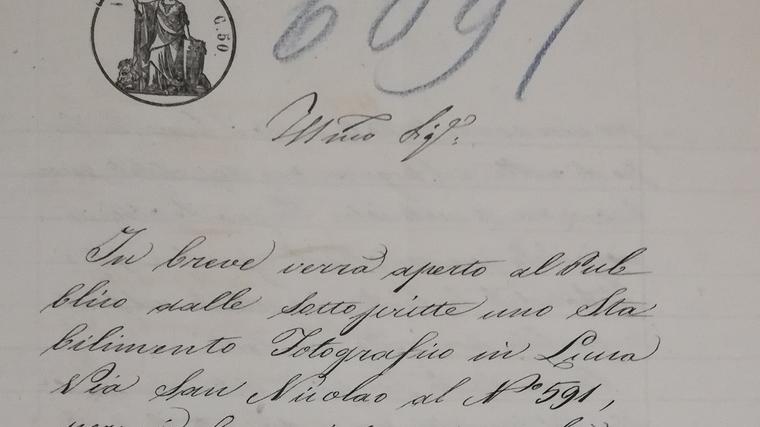 C. 50.
6091
Ill.mo Sig.r
In breve verrà aperto al Pub
blico dalle sottoscritte uno Sta
bilimento Fotografico in Lucca
Via San Nicolao al N.o 591,